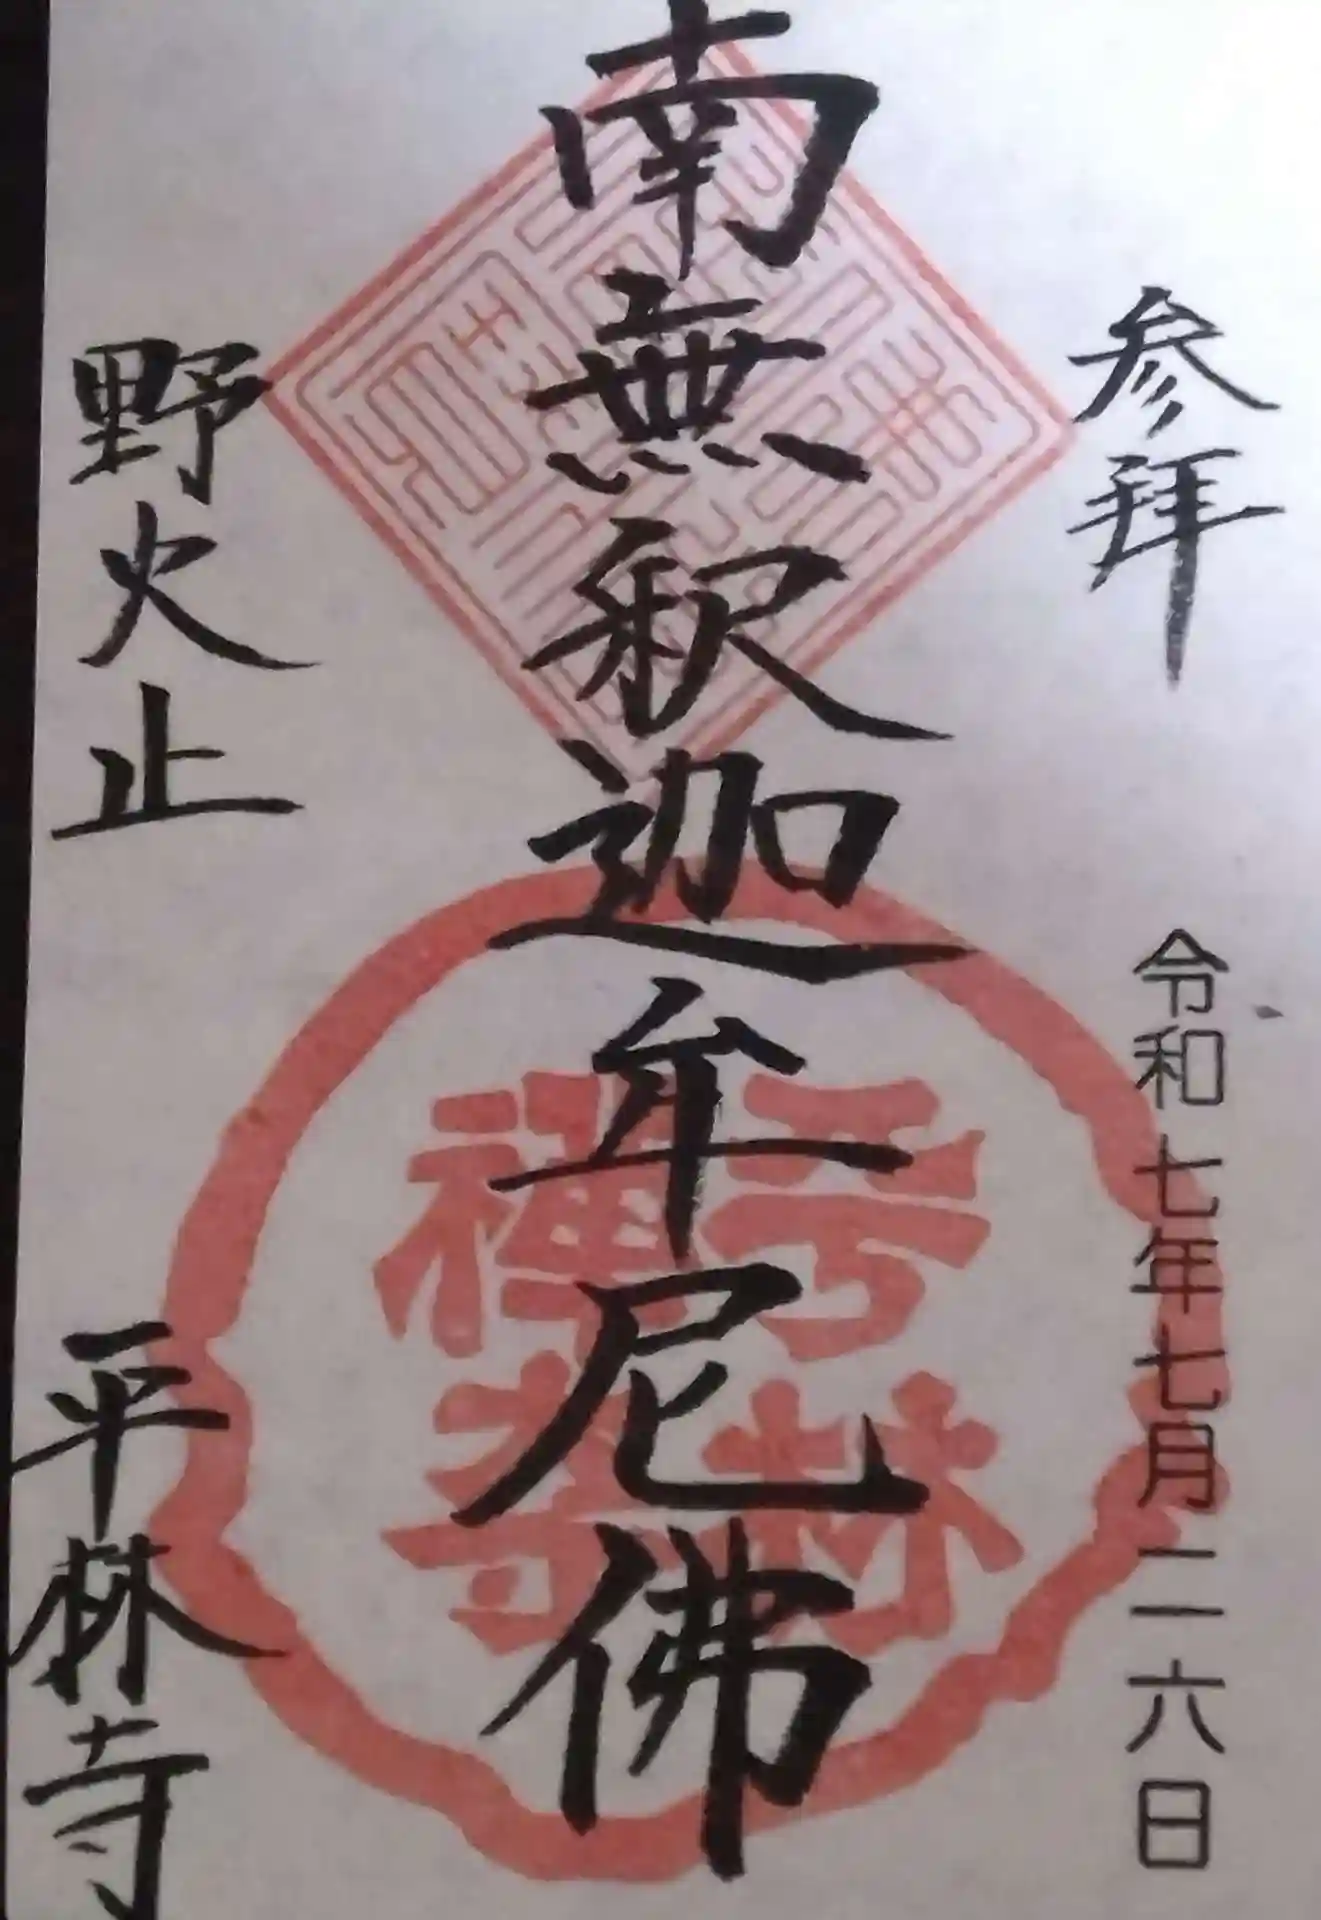 参拝
令和七年七月二六日
南無釈迦牟尼佛
平林
禅寺
野火止
平林寺